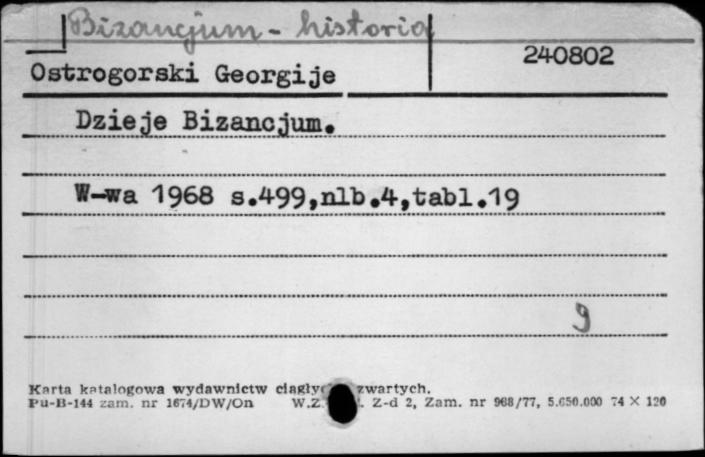 Bizancjum - historia
240802
Ostrogorski Georgije
Dzieje Bizancjum.
W-wa 1968 s.499,nlb.4,tabl.19
9
Karta katalogowa wydawnictw zwartych.
Pu-B-144 zam. nr 1674/DW/On W.Z. Z-d 2, Zam. nr 968/77, 5.650.000 74 X 120